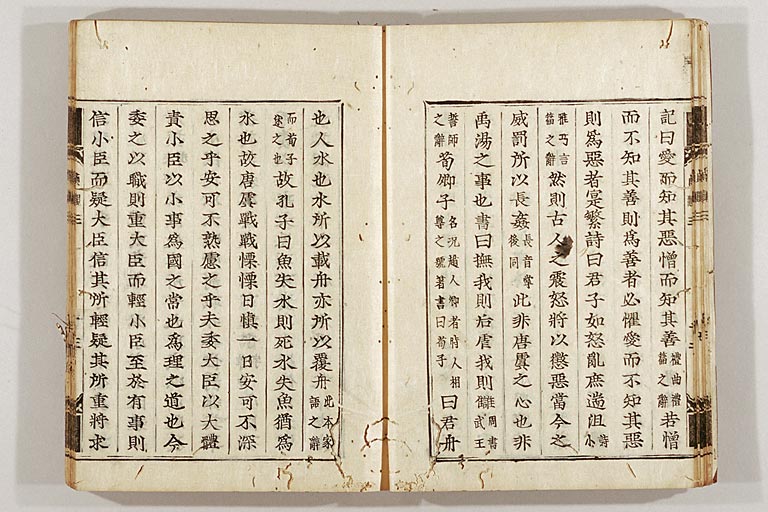 記曰愛而知其惡憎而知其善禮曲禮篇之辭若憎
而不知其善則爲善者必懼愛而不知其惡
則爲惡者寔繁詩曰君子如怒亂庶遄沮詩小
雅巧言篇之辭然則古人之震怒將以懲惡當今之
威罰所以長姦長音掌後同此非唐虞之心也非
禹湯之事也書曰撫我則后虐我則讎周書武王
誓師之辭荀卿子名况趙人卿者時人相尊之號著書曰荀子曰君舟
也人水也水所以載舟亦所以覆舟此本家語之辭
而荀子述之也故孔子曰魚失水則死水失魚猶爲
水也故唐虞戰戰慄慄日愼一日安可不深
思之乎安可不熟慮之乎夫委大臣以大體
責小臣以小事爲國之常也爲理之道也今
委之以職則重大臣而輕小臣至於有事則
信小臣而疑大臣信其所輕疑其所重將求